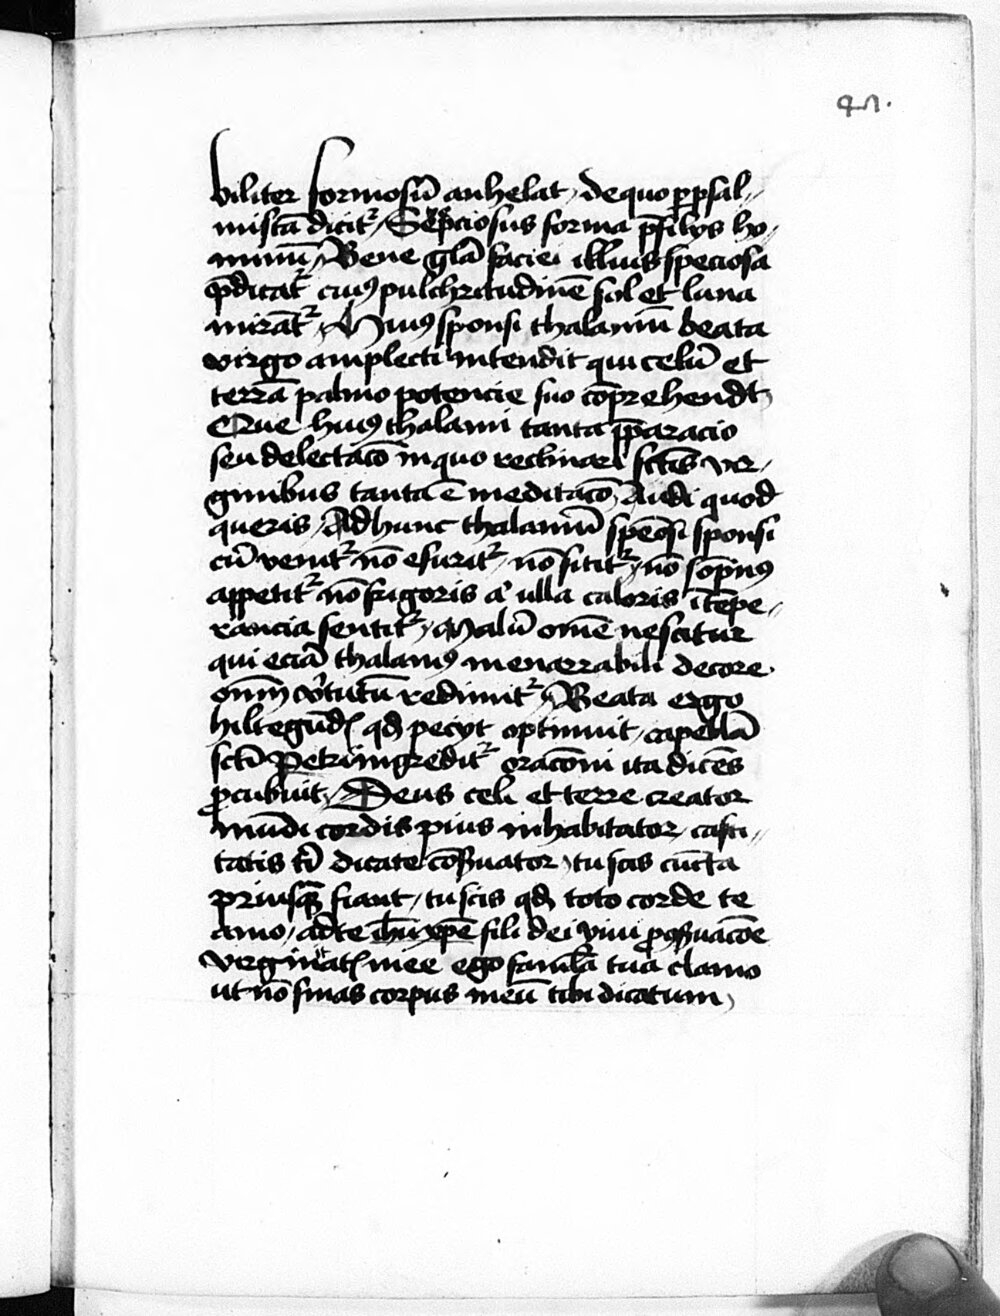 47.
biliter formosū anhelat, de quo p psal„
mistā dicit᷑, Sepciosus forma p̄ filijs ho„
minū, Bene gl̄a faciei illius speciosa
p̄dicat᷑ cuiꝰ pulchritudinē sol et luna
mirāt᷑, Huiꝰ sponsi thalamū beata
virgo amplecti intendit qui celū et
terrā palmo potencie suo cōprehendt,
Que huiꝰ thalami tanta p̄paracio
seu delectac̄o in quo reclinari sc̄tis vir„
ginibus tanta ē meditac̄o, Audi quod
queris, Ad hunc thalamū speōsi sponsi
cū venit᷑ nō esurit᷑, nō sitit᷑, nō sopnꝰ
appetit᷑ nō frigoris a' ulla caloris ītēpe„
rancia sentit᷑, Malū omē nescitur
qui eciā thalamꝰ inenarrabili decore
om̄m v̄tutū redimit᷑, Beata ergo
hiltegūdꝭ qd̄ pecyt optinuit, capellā
sct̄i Petri ingredit᷑ orac̄oni ita dicēs
ꝓcubuit, Deus celi et terre creator
mūdi cordis pius inhabitator, casti„
tatis t̄i dicate cōs̄uator, tu scis cūcta
priusq̄ fiant, tu scis qd̄ toto corde te
amo, ad te ih̄u xp̄e fili dei vivi ꝓ ꝯs̄uac̄oe
virginitatꝭ mee ego famul̄a tua clamo
ut nō sinas corpus meū tibi dicatum,